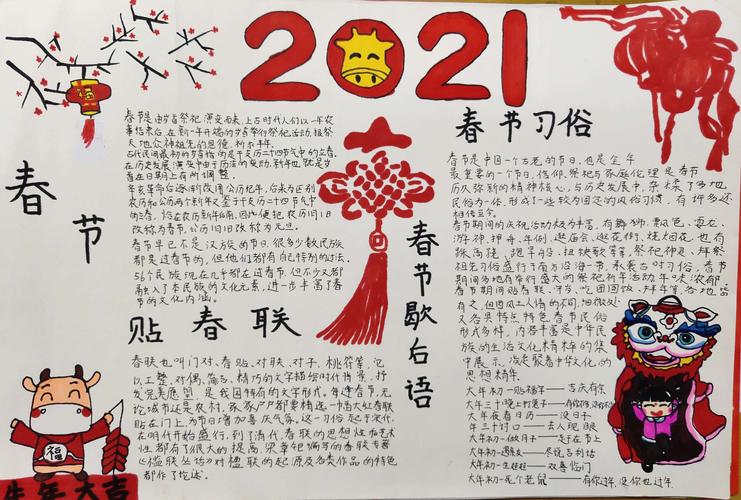 2021
春节
春节是由岁首祭祀演变而来,上古时代人们以一年农
事结束后,在新一年开端的岁首举行祭祀活动,报祭
天地众神祖先的恩德,祈求丰年.
古代民间最初的岁首指的是干支历二十四节气中的立春.
在历史发展演变中由于历法的变动,新年也就是岁
首在日期上有所调整.
年亥革命后逐渐改用公历纪年,后来为区别
农历和公历两个新年又鉴于干支历二十四节气中
的立春,恰在农历新年的前后,因此便把农历初一旧
改称为春节,公历初一旧改称为元旦.
春节早已不是汉族的节日,很多少数民族
都是过春节的,但他们都有自己特别的过法.
56个民族现在几乎都在过春节,但不少又都
融入了本民族的文化元素,进一步丰富了春
节的文化内涵.
贴春联
春联也叫门对、春贴、对联、对子、桃符等,它
以工整、对偶、简洁、精巧的文字描绘时代背景,抒
发完美愿望,是我国特有的文学形式.每逢春节,无
论城市还是农村,家家户户都要精选一幅大红春联
贴在门上,为节日增加喜庆气氛.这一习俗起于宋代,
在明代开始盛行,到了清代,春联的思想性和艺术
性都有了很大的提高,梁章钜编写的春联专著
《槛联丛话》对楹联的起源及各类作品的特色
都作了论述.
福
牛年大吉
春节习俗
春节是中国一个古老的节日,也是全年
最重要的一个节日,信仰,祭祀与家庭伦理是春节
历久弥新的精神核心,与历史发展中,杂糅了多地
民俗为一体,形成了一些较为固定的风俗习惯,有许多还
相传至今.
春节期间的庆祝活动极为丰富,有舞狮、飘色、耍龙、
游神、押舟、年例、逛庙会、逛花街、烧烟花也有
踩高跷、跑旱船、扭秧歌等等.祭祀神灵、拜祭
祖先习俗盛行于南方沿海一带,承袭古时习俗,春节
期间多地有举行盛大的祭祀祈年活动,年味浓郁
春节期间贴春联、守岁、吃团圆饭、拜年等各地皆
有之,但因风土人情的不同,细微处
又各具特点特色春节民俗
形式多样,内容丰富是中华民
族的生活文化精粹的集
中展示
思想精华.
春节歇后语
大年初一贴福字——吉庆有余
大年夜看日历——没日子
年三十讨口——去人现眼
大年初一做月子——赶于在节上
大年初一遇亲友——尽说吉利话
大年初一生娃娃——双喜临门
大年初一死个老鼠——有你过年,没你也过年.